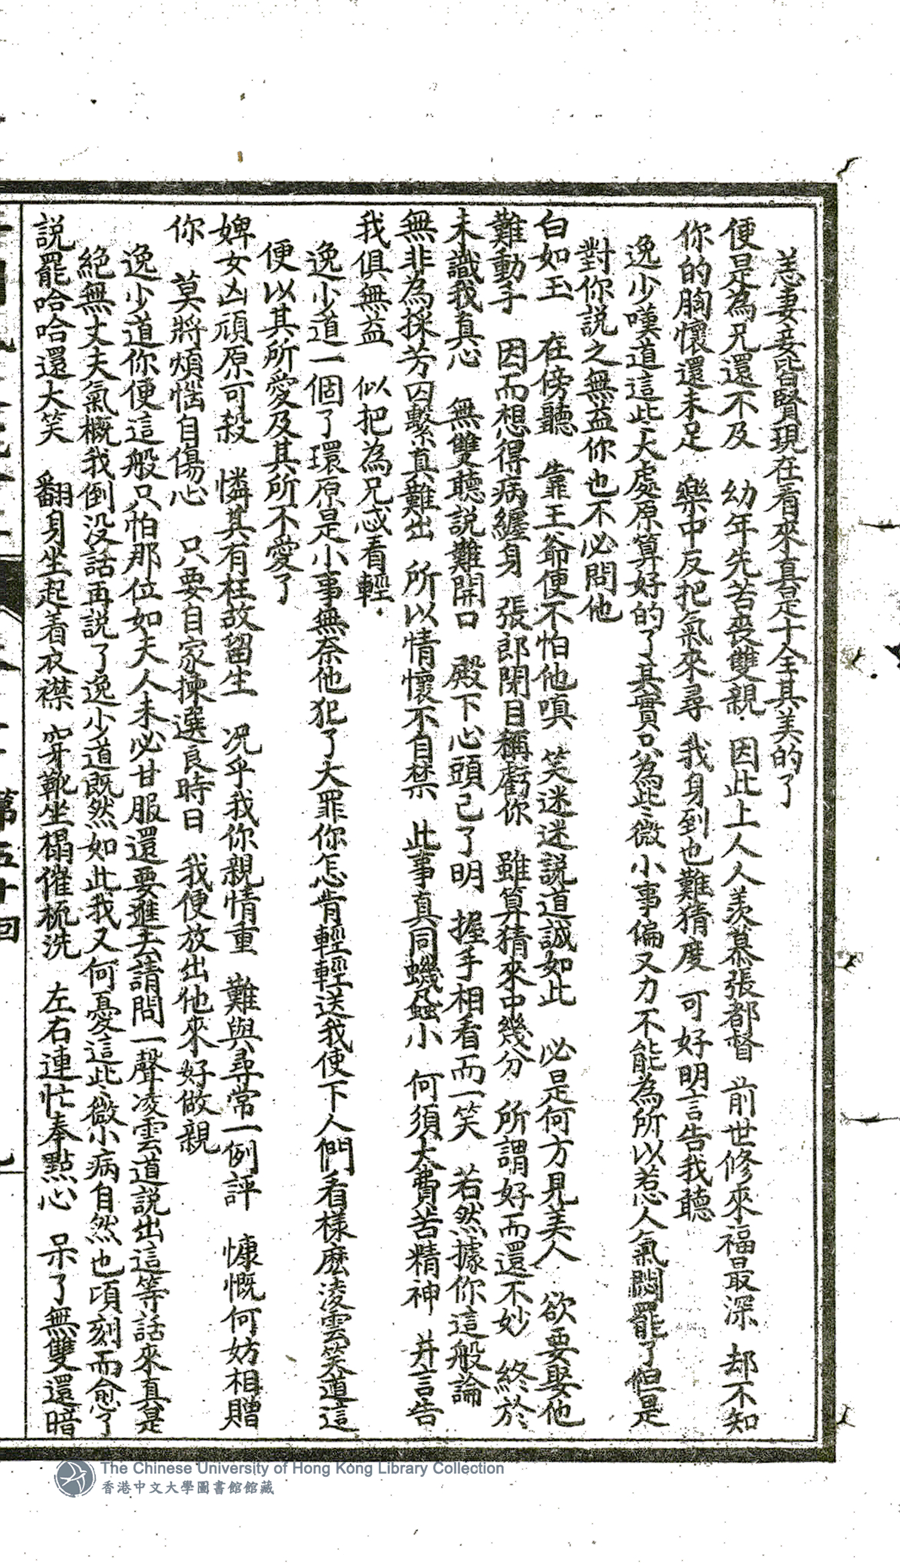 恙妻妾皆賢現在看來真是十全其美的了
便是為兄還不及　幼年先苦喪雙親　因此上人人羨慕張都督　前世修來福最深　却不知
你的胸懷還未足　樂中反把氣來尋　我身到也難猜度　可好明言告我聽
逸少嘆道這些大處原算好的了其實只為些微小事偏又力不能為所以惹人氣悶罷了但是
對你說之無益你也不必問他
白如玉　在傍聽　靠王爺便不怕他嗔　笑迷迷說道誠如此　必是何方見美人　欲要娶他
難動手　因而想得病纏身　張郎閉目稱虧你　雖算猜來中幾分　所謂好而還不妙　終於
未識我真心　無雙聽說難開口　殿下心頭已了明　握手相看而一笑　若然據你這般論
無非為採芳因繫真難出　所以情懷不自禁　此事真同蟣蝨小　何須太費苦精神　并言告
我俱無益　似把為兄忒看輕
逸少道一個了環原是小事無奈他犯了大罪你怎肯輕輕送我使下人們看樣麽凌雲笑道這
便以其所愛及其所不愛了
婢女凶頑原可殺　憐其有枉故留生　况乎我你親情重　難與尋常一例評　慷慨何妨相贈
你　莫將煩惱自傷心　只要自家揀選良時日　我便放出他來好做親
逸少道你便這般只怕那位如夫人未必甘服還要進去請問一聲凌雲道說出這等話來真是
絕無丈夫氣概我倒没話再說了逸少道既然如此我又何憂這些微小病自然也頃刻而愈了
說罷哈哈還大笑　翻身坐起着衣襟　穿靴坐榻催梳洗　左右連忙奉點心　呆了無雙還暗
第五十回
The Chinese University of Hong Kong Library Collection
香港中文大學圖書館館藏